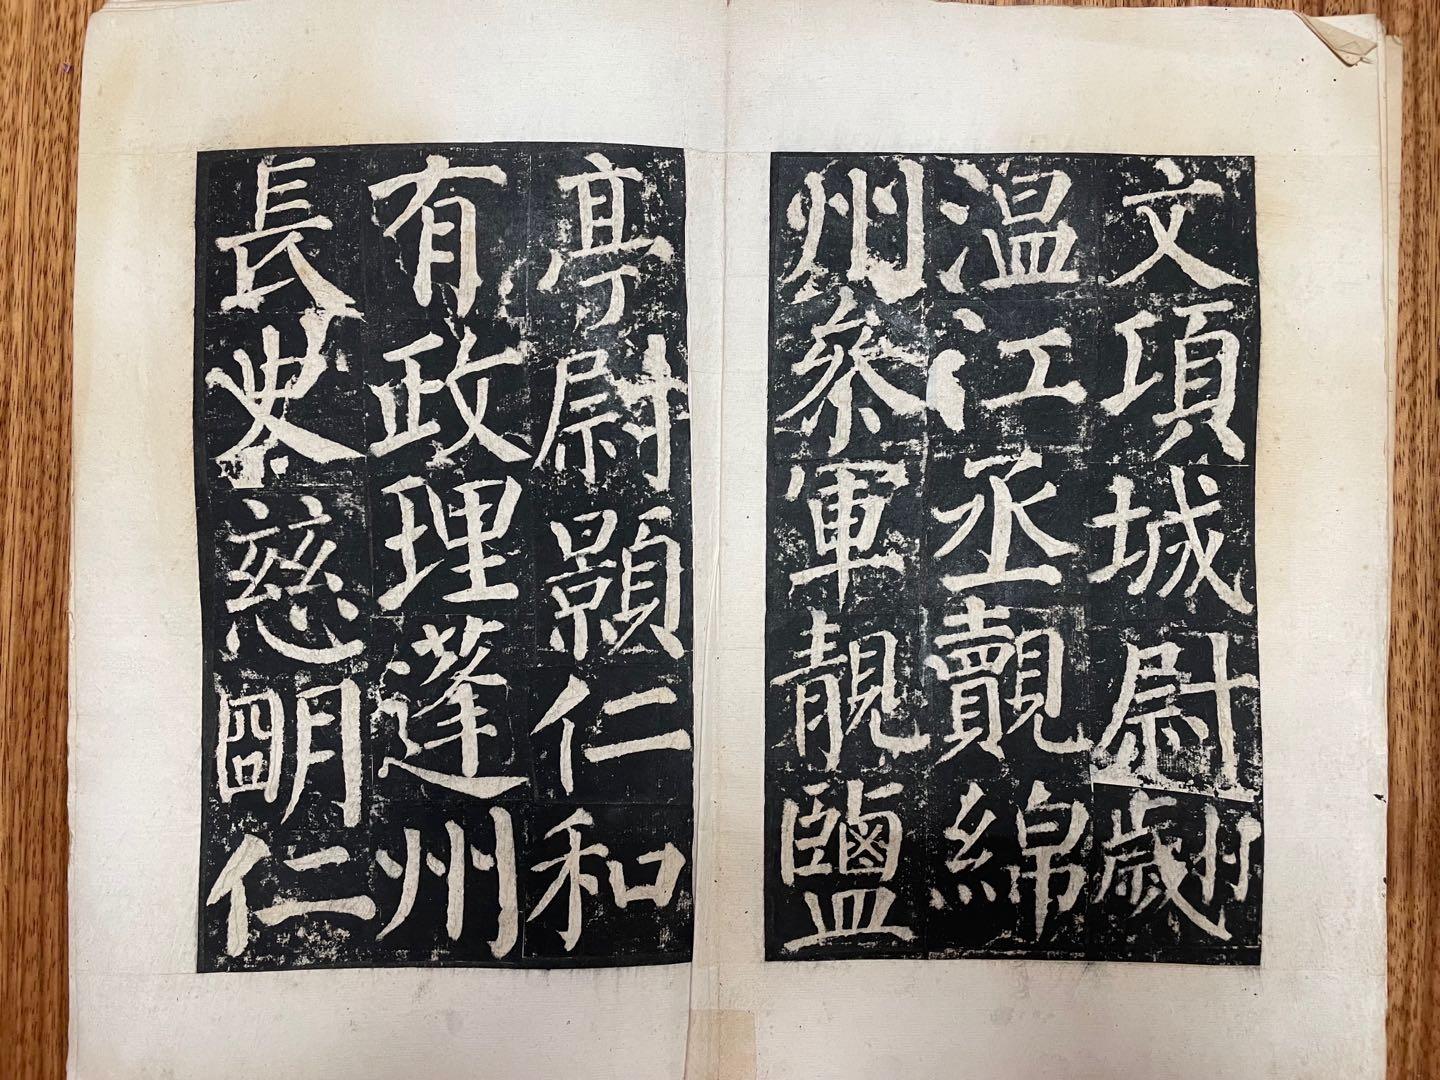 文項城尉劌
温江丞覿綿
州參軍靚鹽
亭尉顥仁和
有政理蓬州
長史慈明仁